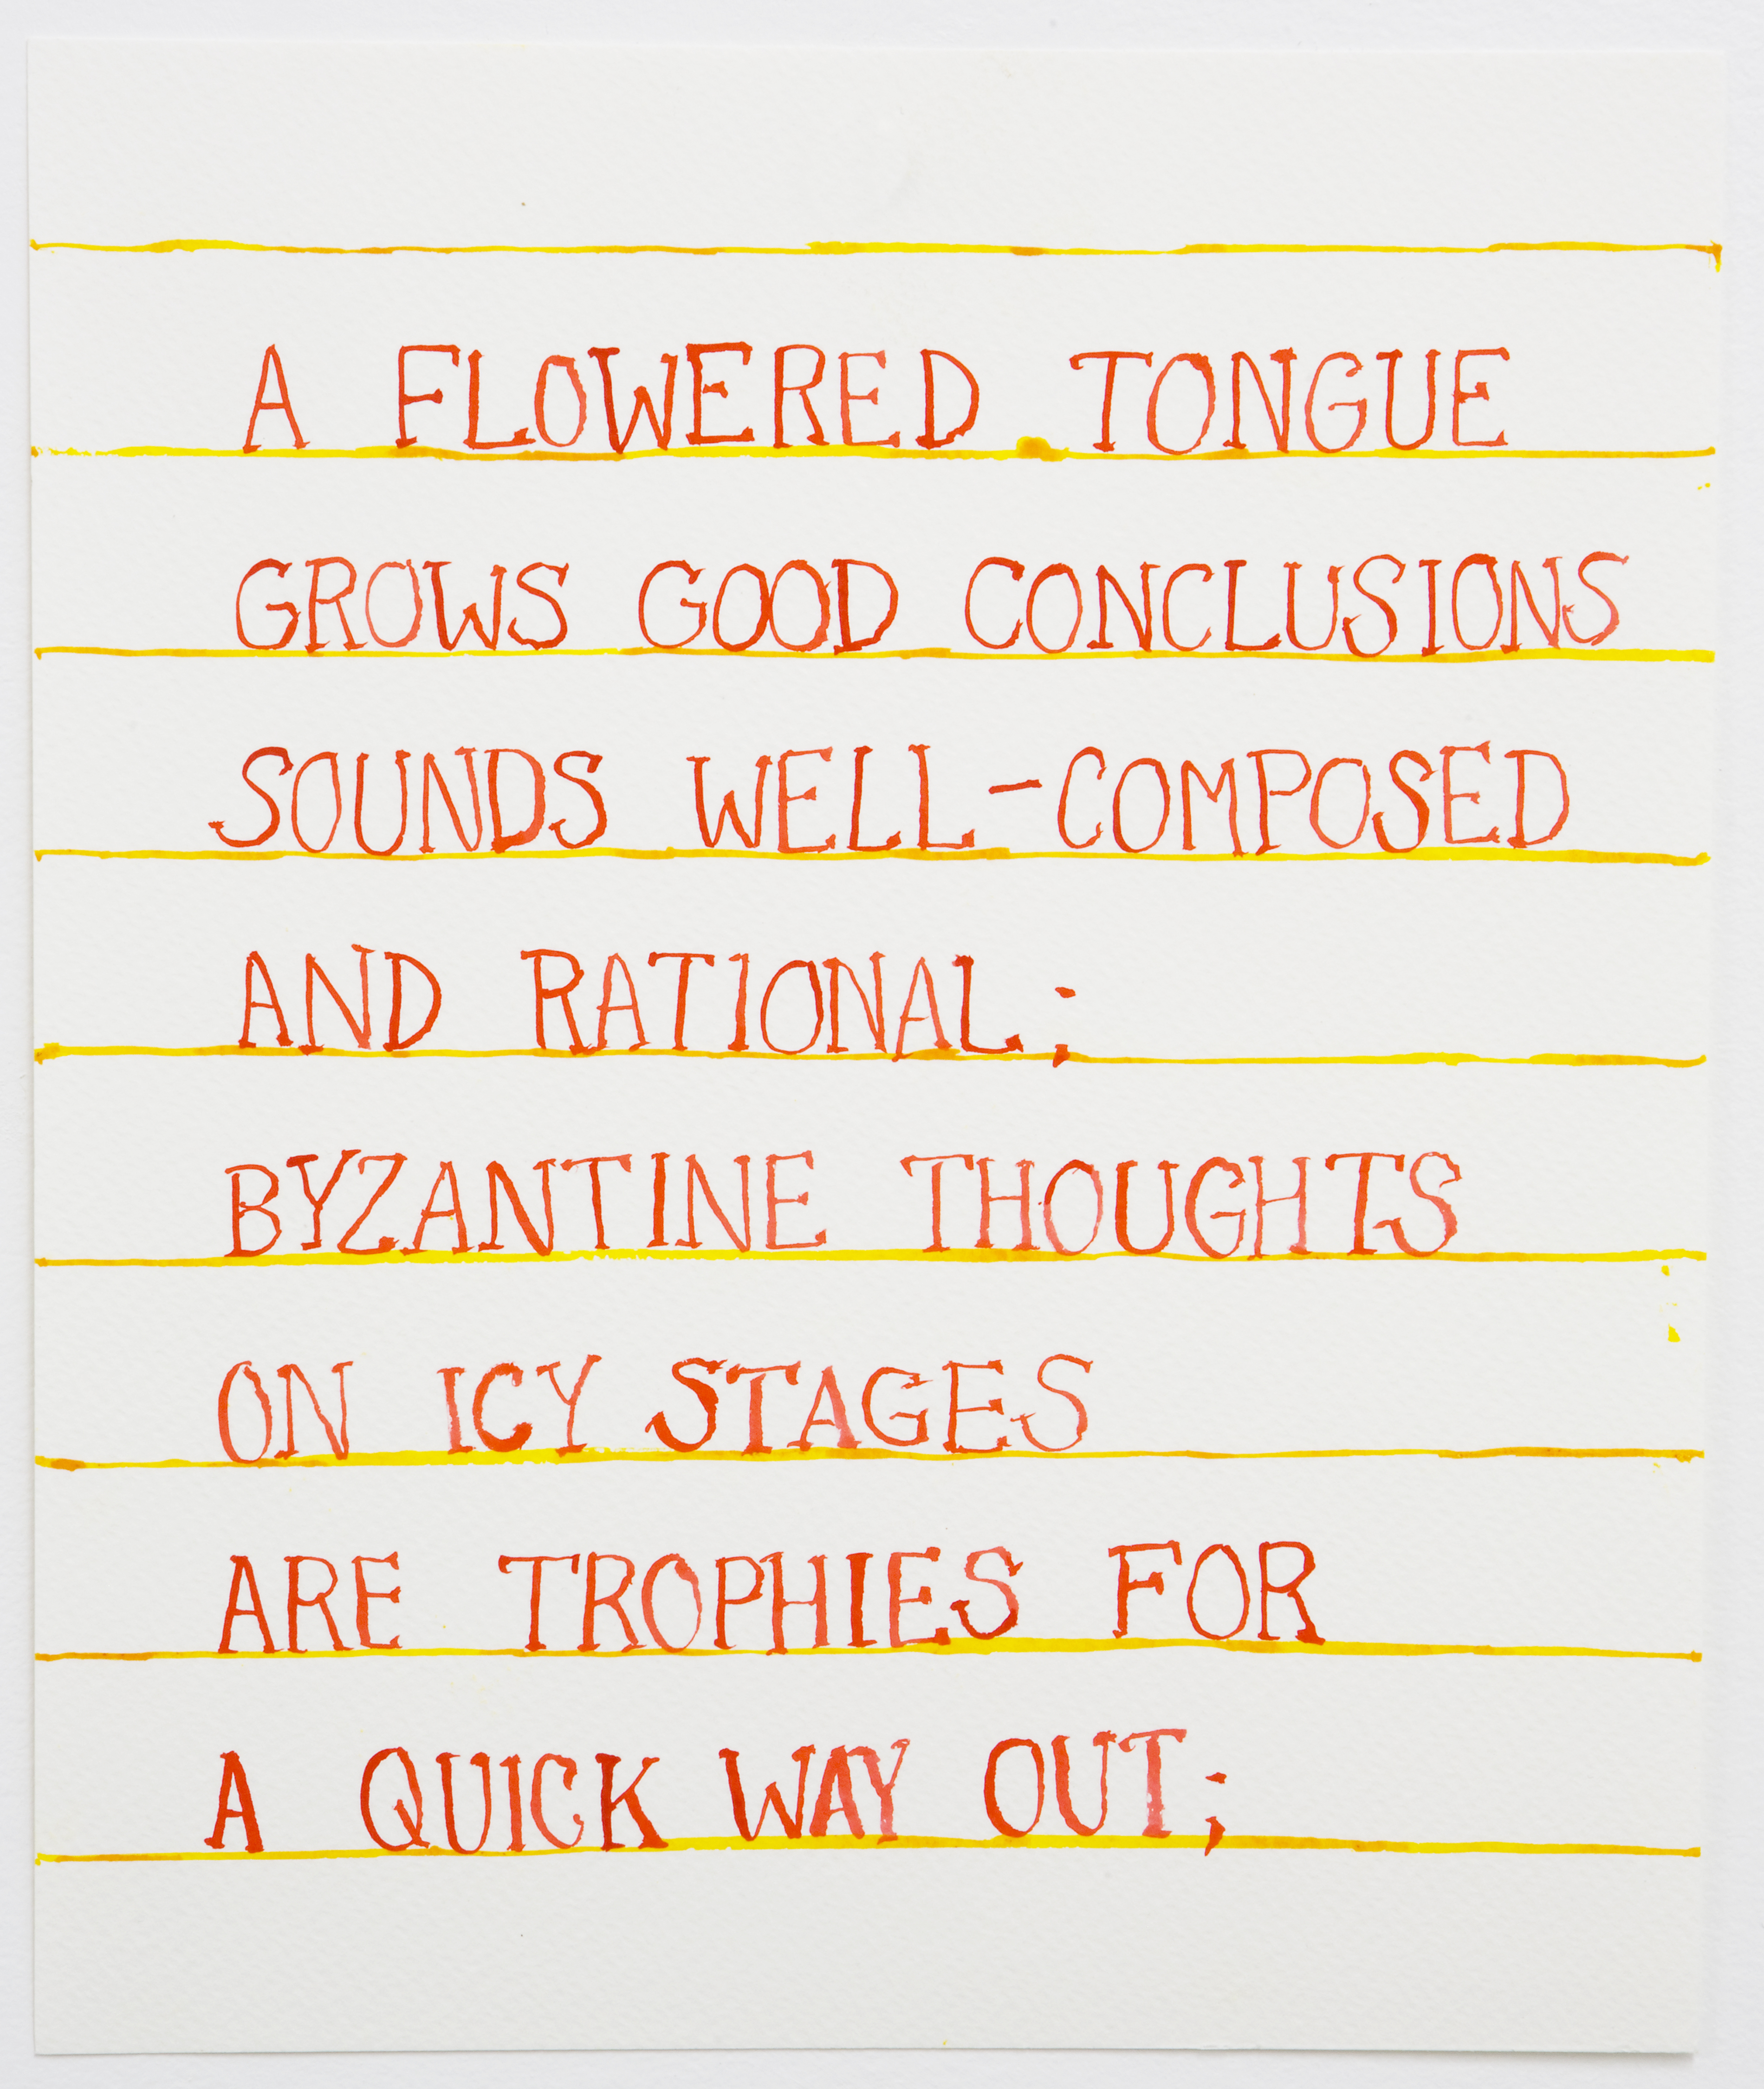 A FLOWERED TONGUE
GROWS GOOD CONCLUSIONS
SOUNDS WELL-COMPOSED
AND RATIONAL;
BYZANTINE THOUGHTS
ON ICY STAGES
ARE TROPHIES FOR
A QUICK WAY OUT;